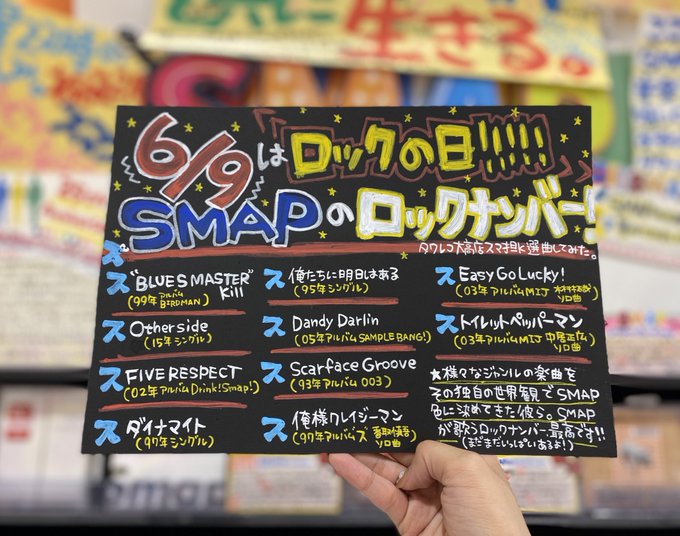 生きる。
6/9は"ロックの日!!!!!"
SMAPのロックナンバー!
タワレコ大高店スマ担が選曲してみた。
ス "BLUES MASTER" Kill
(99年 アルバム BIRDMAN)
ス Otherside
(15年シングル)
ス FIVE RESPECT
(02年アルバムDrink!Smap!)
ス ダイナマイト
(97年シングル)
ス 俺たちに明日はある
(95年シングル)
ス Dandy Darlin
(05年アルバムSAMPLE BANG!)
ス Scarface Groove
(93年アルバム003)
ス 俺様クレイジーマン
(97年アルバムス 香取慎吾 ソロ曲)
ス Easy Go Lucky!
(03年アルバムMIJ 木村拓哉 ソロ曲)
ス トイレットペッパーマン
(03年アルバムMIJ 中居正広 ソロ曲)
★様々なジャンルの楽曲を
その独自の世界観でSMAP
色に決めてきた彼ら。SMAP
が歌うロックナンバー最高です!!
(まだまだいっぱいあるよ!)